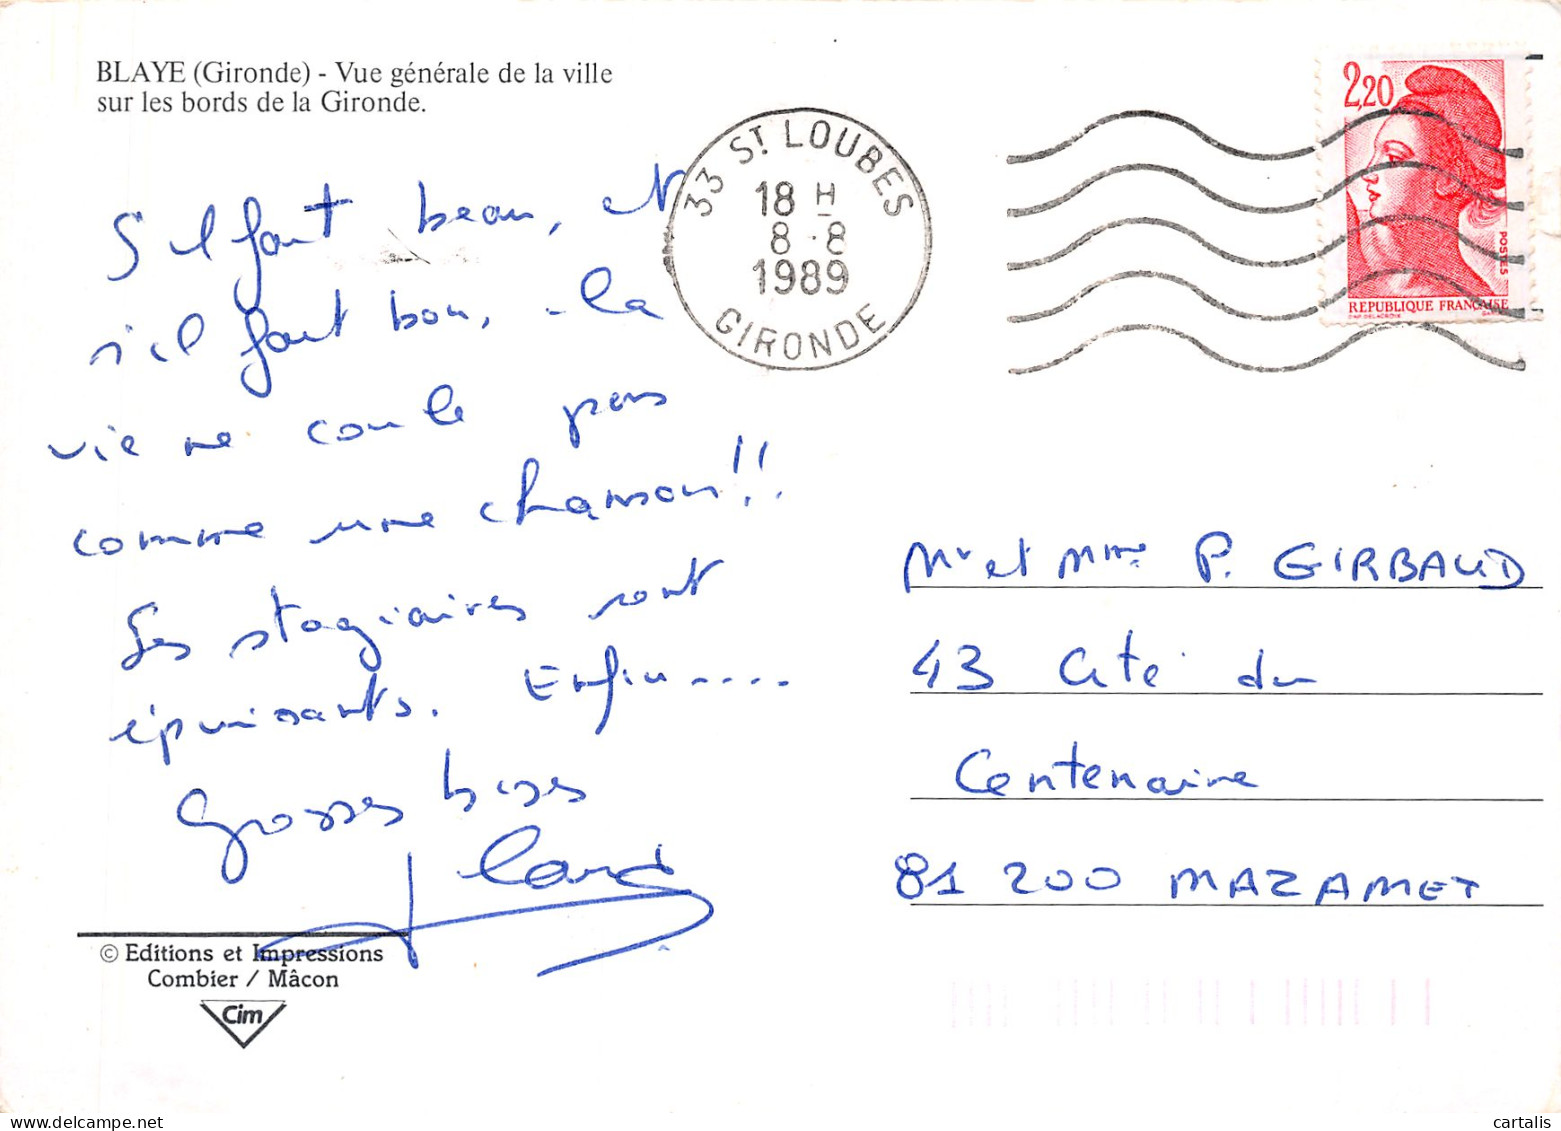 BLAYE (Gironde) - Vue générale de la ville
sur les bords de la Gironde.
S'il fait beau, et
s'il fait bon, la
vie ne coule pas
comme une chanson!!
Les stagiaires sont
épuisants. Enfin.....
Grosses bises
33 ST LOUBES
18 H
8-8
1989
GIRONDE
2,20
POSTES
REPUBLIQUE FRANÇAISE
Mr et Mme P. GIRBAUD
43 Cité du
Centenaire
81 200 MAZAMET
© Editions et Impressions
Combier / Mâcon
Cim
cartalis